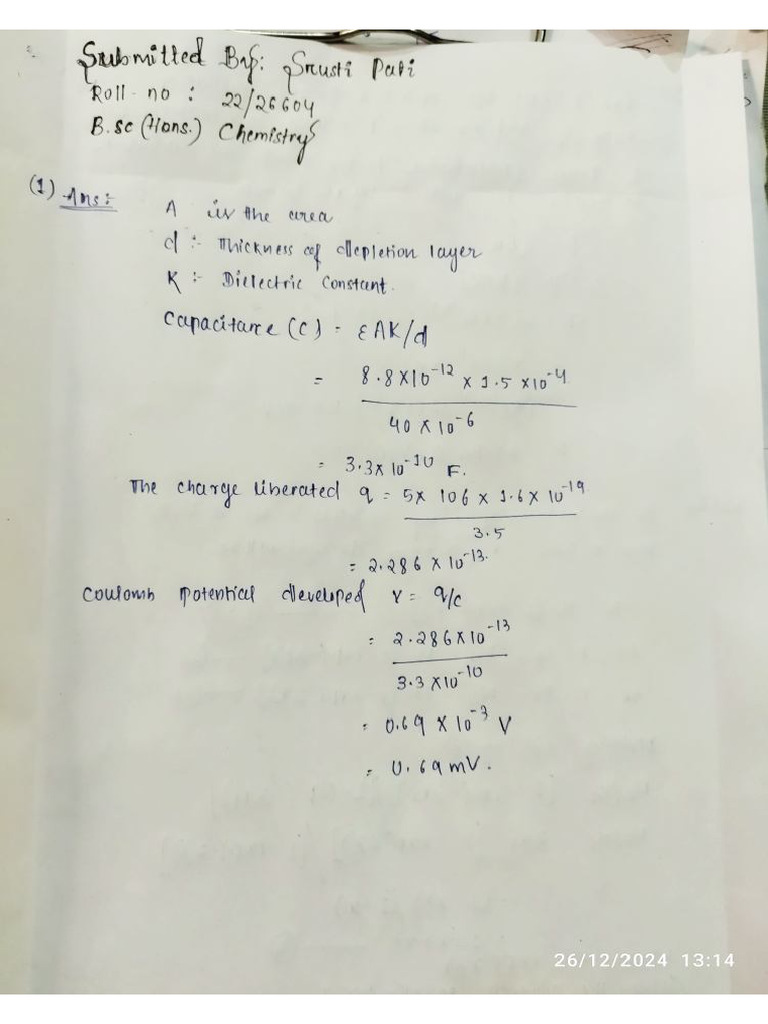 Submitted By: Srusti Pati
Roll-no : 22/26604
B.sc (Hons.) Chemistry
(1) Ans:-
A is the area
d :- Thickness of depletion layer
K :- Dielectric Constant.
Capacitance (C) = εAK/d
= 8.8×10⁻¹² × 1.5 ×10⁻⁴
40 × 10⁻⁶
= 3.3×10⁻¹⁰ F.
The charge liberated q = 5× 106 × 1.6 × 10⁻¹⁹
3.5
= 2.286 × 10⁻¹³.
Coulomb potential developed V = q/c
= 2.286×10⁻¹³
3.3 ×10⁻¹⁰
= 0.69 × 10⁻³ V
= 0.69 mV.
26/12/2024 13:14